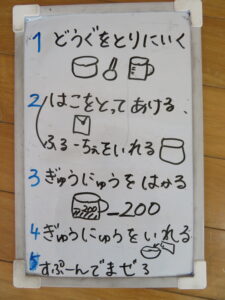 1 どうぐをとりにいく
2 はこをとってあける、
ふるーちぇをいれる
3 ぎゅうにゅうをはかる
200 200
4 ぎゅうにゅうをいれる
5 すぷーんでまぜる